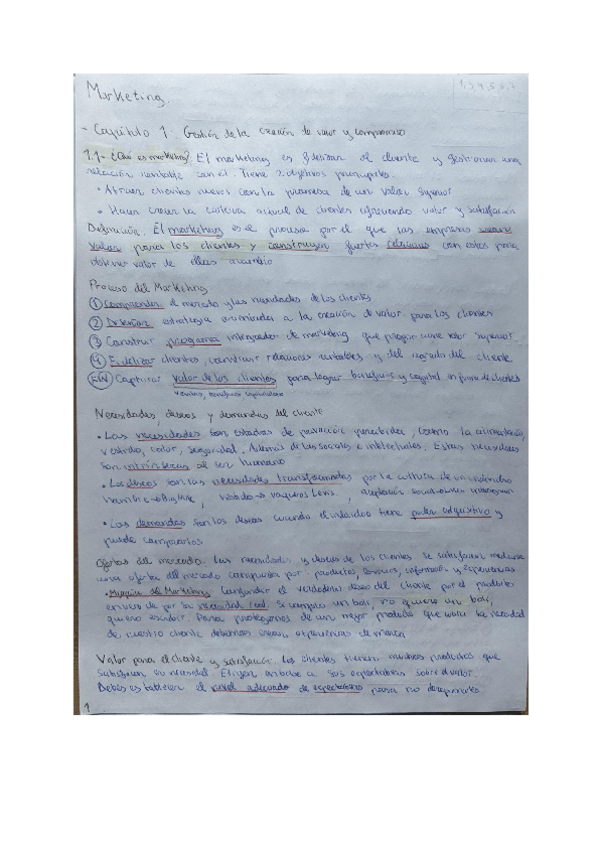 Marketing.
1,3,4,5,6,7
- Capítulo 1. Gestión de la creación de valor y compromiso
1.1- ¿Qué es marketing? El marketing es fidelizar al cliente y gestionar una
relación rentable con él. Tiene 2 objetivos principales.
• Atraer clientes nuevos con la promesa de un valor superior
• Hacer crecer la cartera actual de clientes ofreciendo valor y satisfacción
Definición. El marketing es el proceso por el que las empresas crean
valor para los clientes y construyen fuertes relaciones con estos para
obtener valor de ellos a cambio
Proceso del Marketing
① Comprender el mercado y las necesidades de los clientes
② Diseñar estrategia orientada a la creación de valor para los clientes
③ Construir programa integrador de marketing que proporcione valor superior
④ Fidelizar clientes, construir relaciones rentables y del agrado del cliente
FIN Capturar valor de los clientes para lograr beneficios y capital en forma de clientes
ventas, beneficios
Necesidades, deseos y demandas del cliente
• Las necesidades son estados de privación percibida como la alimentación,
vestido, calor, seguridad. Además de las sociales e intelectuales. Estas necesidades
son intrínsecas al ser humano
• Los deseos son las necesidades transformadas por la cultura de un individuo
hambre → Big Mac, vestido → vaqueros Levis, aceptación social →
• Las demandas son los deseos cuando el individuo tiene poder adquisitivo y
puede comprarlos
Ofertas del mercado. Las necesidades y deseos de los clientes se satisfacen mediante
una oferta del mercado compuesta por: productos, servicios, información y experiencias
• Miopía del Marketing. Confundir el verdadero deseo del cliente por el producto
en vez de por la necesidad real. Si compras un boli, no quiero un boli,
quiero escribir. Para protegernos de un mejor producto que cubra la necesidad
de nuestro cliente debemos crear experiencias de marca
Valor para el cliente y satisfacción. Los clientes tienen muchos productos que
satisfacen su necesidad. Eligen en base a sus expectativas sobre el valor.
Debes establecer el nivel adecuado de expectativas para no decepcionarlos
1